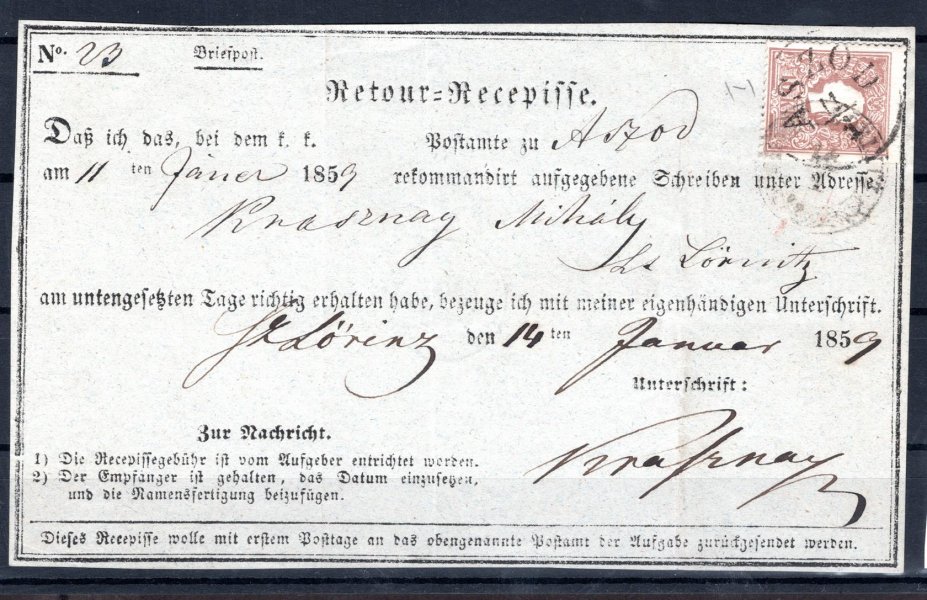 No. 23 Briefpost.
Retour-Recepisse.
ASZOD
Daß ich das, bei dem k. k. Postamte zu Aszod
am 11 ten Jäner 1859 rekommandirt aufgegebene Schreiben unter Adresse
Krasznay Mihály
am untengesetzten Tage richtig erhalten habe, bezeuge ich mit meiner eigenhändigen Unterschrift.
Sz Lörinz den 14 ten Januar 1859
Unterschrift:
Krasznay
Zur Nachricht.
1) Die Recepissegebühr ist vom Aufgeber entrichtet worden.
2) Der Empfänger ist gehalten, das Datum einzusetzen,
und die Namensfertigung beizufügen.
Dieses Recepisse wolle mit erstem Posttage an das obengenannte Postamt der Aufgabe zurückgesendet werden.